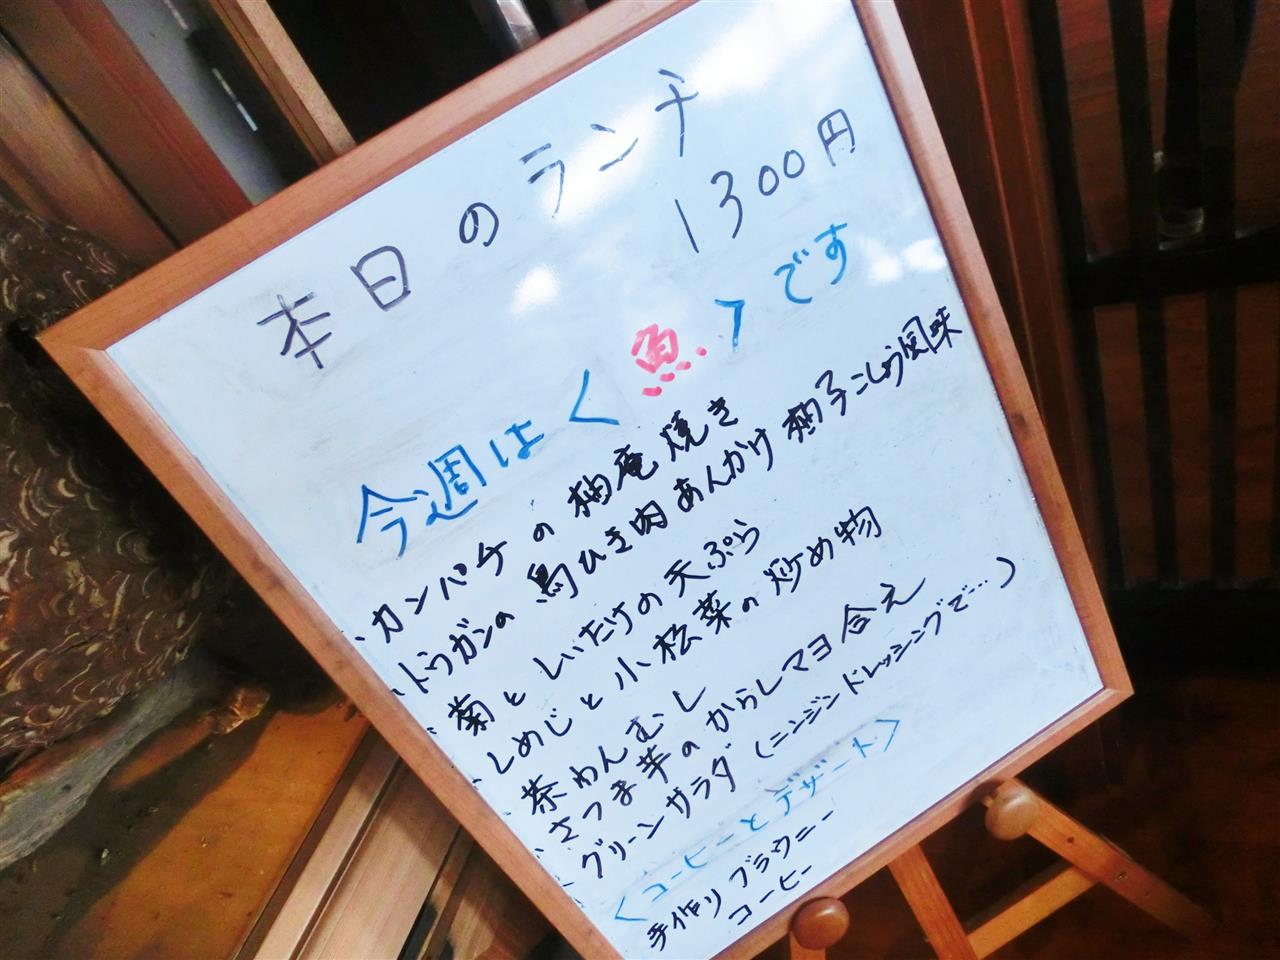 本日のランチ
1300円
今週は<魚>です
・カンパチの柚庵焼き
・トウガンの鳥ひき肉あんかけ 柚子こしょう風味
・菊としいたけの天ぷら
・しめじと小松菜の炒め物
・茶わんむし
・さつま芋のからしマヨ合え
・グリーンサラダ(ニンジンドレッシングで…)
<コーヒーとデザート>
手作りブラウニー
コーヒー